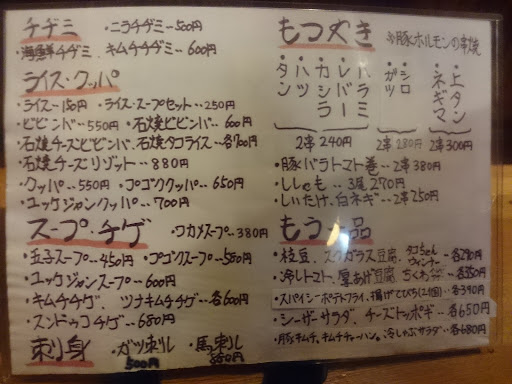 チヂミ ・ニラチヂミ…500円
・海鮮チヂミ・キムチチヂミ…600円
ライス・クッパ
・ライス…150円 ・ライス・スープセット…250円
・ビビンバ…550円 ・石焼ビビンバ…600円
・石焼チーズビビンバ、石焼タコライス…各700円
・石焼チーズリゾット…880円
・クッパ…550円 ・プゴククッパ…650円
・ユッケジャンクッパ…700円
スープ・チゲ ・ワカメスープ…380円
・玉子スープ…450円 ・プゴクスープ…550円
・ユッケジャンスープ…600円
・キムチチゲ、ツナキムチチゲ…各600円
・スンドゥブチゲ…680円
刺り身 ・ガツ刺し 500円 ・馬刺し
もつやき ※豚ホルモンの串焼
・タン
・ハツ
・カシラ
・レバー
・バラ
・ハラミ
2串240円
・ガツ
・シロ
2串280円
・ネギマ
・上タン
2串300円
・豚バラトマト巻…2串380円
・ししゃも…3尾270円
・しいたけ、白ネギ…2串250円
もう一品
・枝豆、スクガラス豆腐、タコちゃんウィンナー…各290円
・冷しトマト、厚あげ豆腐、ちくわ…各350円
・スパイシーポテトフライ、揚げてびち(2個)…各390円
・シーザーサラダ、チーズトッポギ…各650円
・豚キムチ、キムチチャーハン、冷しゃぶサラダ…各680円